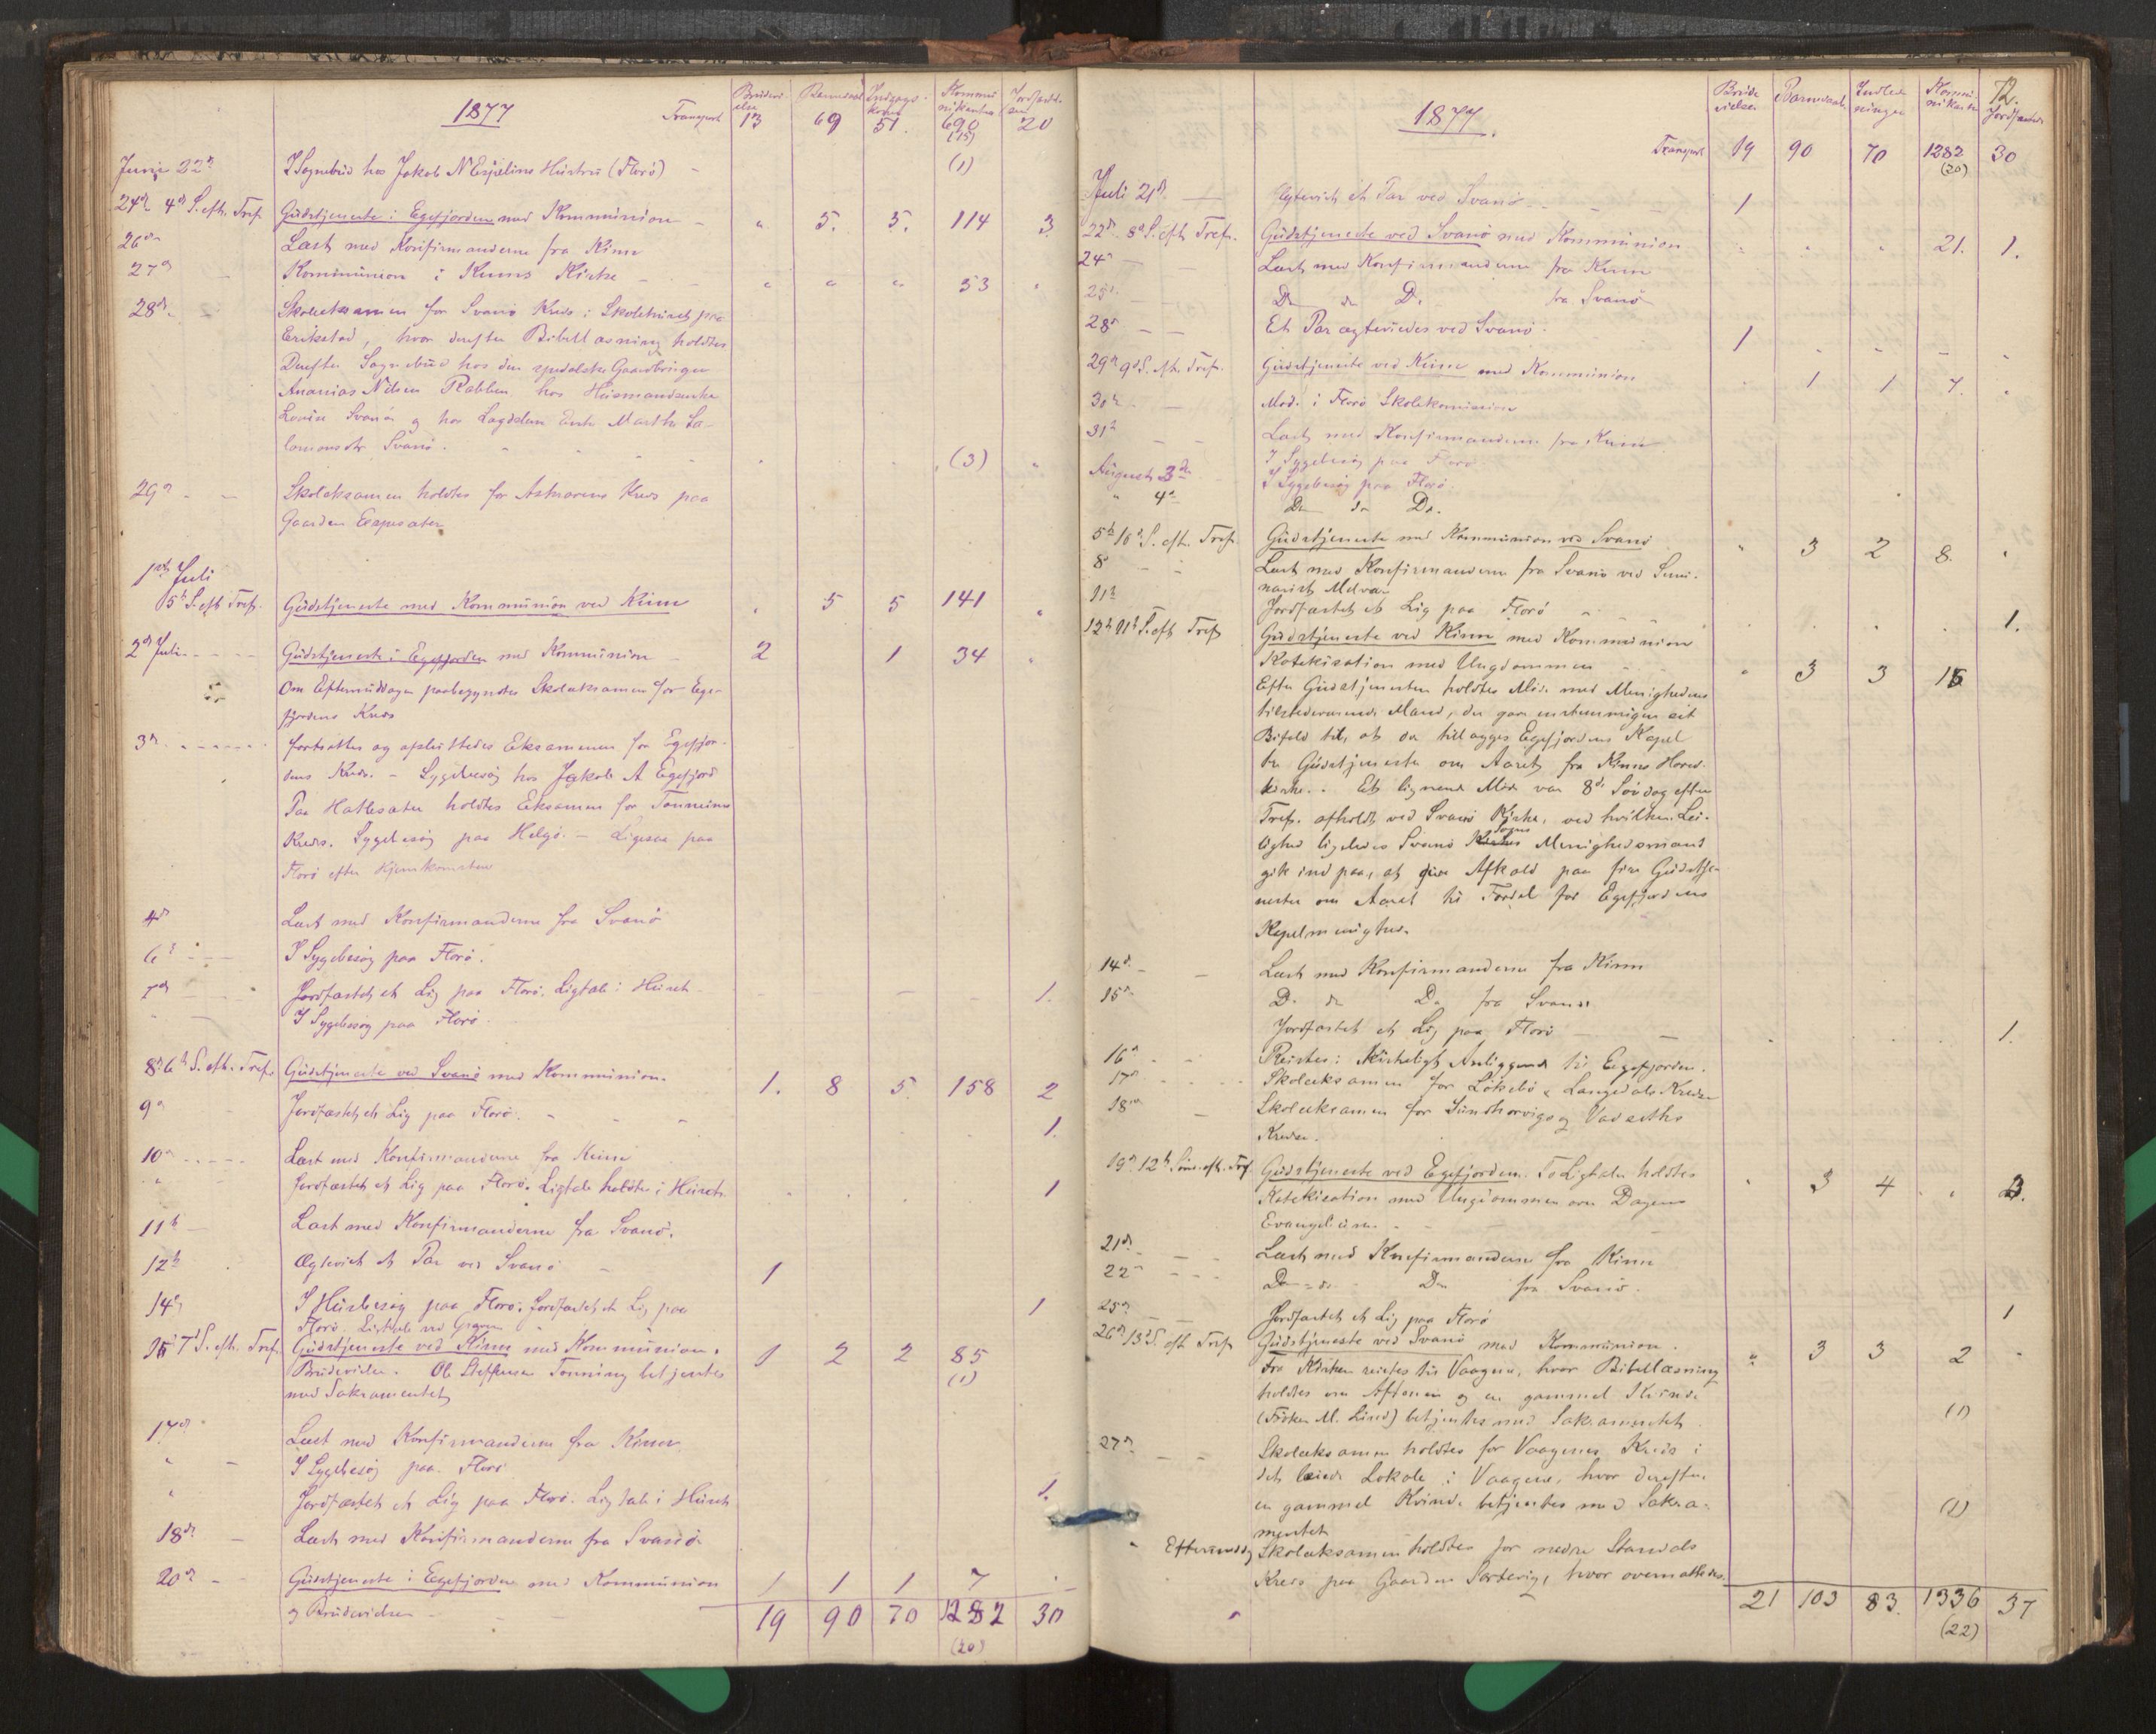 1877
Transport
Brudevi-
elser Barnedaab Indgangs-
koner Kommu-
nikanter Jordfæstel-
ser
13 69 51. 690 20
(15)
Juni 22de I Sognebud hos Jakob N Espelins Hustru (Florö) - (1)
24de 4de S. eft. Tref. Gudstjeneste i Egefjorden med Kommunion - " 5. 5. 114 3.
26de Læst med Konfirmanderne fra Kinn
27de Kommunion i Kinns Kirke - - " " " 53 "
28de Skoleeksamen for Svanö Kreds i Skolehuset paa
Erikstad, hvor derefter Bibellæsning holdtes
Derefter Sognebud hos den spedalske Gaardbruger
Ananias Nilsen Rabben hos Husmandsenke
Lovise Svanö og hos Lægdslem Enke Marthe Sa-
lomonsdtr. Svanö. (3) "
29de Skoleeksamen holdtes for Askværens Kreds paa
Gaarden
1ste Juli
5te S. eft Tref. Gudstjeneste med Kommunion ved Kinn " 5 5 141 "
2den Juli Gudstjeneste i Egefjorden med Kommunion - 2 1 34 "
Om Eftermiddagen paabegyndtes Skoleeksamen for Ege-
fjordens Kreds
3de fortsattes og afsluttedes Eksamenen for Egefjor-
dens Kreds. - Sygebesög hos Jakob A Egefjord
Paa Hatlesæter holdtes Eksamen for Tonnings
Kreds. Sygebesög paa Helgö. - Ligesaa paa
Florö efter Hjemkomsten
4de Læst med Konfirmanderne fra Svanö
6te I Sygebesög paa Florö.
7de Jordfæstet et Lig paa Florö. Ligtale i Huset - 1.
I Sygebesög paa Florö.
8de 6te S. eft. Tref. Gudstjeneste ved Svanö med Kommunion. 1. 8 5. 158 2
9de Jordfæstet et Lig paa Florö. 1.
10de Læst med Konfirmanderne fra Kinn
" Jordfæstet et Lig paa Florö. Ligtale holdtes i Huset. 1
11te Læst med Konfirmanderne fra Svanö.
12te Ægteviet et Par ved Svanö 1
14de I Husbesög paa Florö. Jordfæstet et Lig paa 1
Florö. Ligtale ved Graven
15de 7de S. eft. Tref. Gudstjeneste ved Kinn med Kommunion. 1 2 2 85
Brudevielse. Ol. Steffensen Tonning betjentes (1)
med Sakramentet
17de Læst med Konfirmanderne fra Kinn.
" I Sygebesög paa Florö
" Jordfæstet et Lig paa Florö. Ligtale i Huset 1.
18de Læst med Konfirmanderne fra Svanö
20de Gudstjeneste i Egefjorden med Kommunion 1 1 1 7 -
og Brudevielse - 19 90 70 1282 30
(20)
72.
1877.
Transport
Brude
vielser Barnedaab Indled-
ninger Kommu-
nikanter Jordfæstelser
19 90 70 1282 30
(20)
Juli 21de Ægteviet et Par ved Svanö 1
22de 8de S. eft. Tref. Gudstjeneste ved Svanö med Kommunion " " " 21. 1.
24de Læst med Konfirmanderne fra Kinn
25de Do do Do fra Svanö
28de Et Par ægteviedes ved Svanö. 1 - - - -
29de 9de S. eft. Tref. Gudstjeneste ved Kinn med Kommunion " 1 1 7. "
30te Möde i Florö Skolekommission
31te Læst med Konfirmanderne fra Kinn
I Sygebesög paa Florö
August 3die I Sygebesög paa Florö.
" 4de Do do Do.
5te 10de S. eft. Tref. Gudstjeneste med Kommunion ved Svanö " 3 2 8. "
8de Læst med Konfirmanderne fra Svanö ved Semi-
narist Melvær
11te Jordfæstet et Lig paa Florö 1.
12te 11te S. eft Tref Gudstjeneste ved Kinn med Kommunion
Katekisation med Ungdommen " 3 3 16
Efter Gudstjenesten holdtes Möde med Menighedens
tilstedeværende Mænd, der gave enstemmigen sit
Bifald til, at der tillægges Egefjordens Kapel
to Gudstjenester om Aaret fra Kinns Hoved-
kirke. Et lignende Möde var 8de Söndag efter
Tref. afholdt ved Svanö Kirke, ved hvilken Lei-
lighed ligeledes Svanö Sogns Menighedsmænd
gik ind paa, at give Afkald paa fire Gudstje-
nester om Aaret til Fordel for Egefjordens
Kapelmenighed.
14de Læst med Konfirmanderne fra Kinn
15de Do do Do fra Svanö
Jordfæstet et Lig paa Florö 1.
16de Reiste i kirkeligt Anliggende til Egefjorden.
17de Skoleeksamen for Löksebö & Langedals Kredse
18de Skoleeksamen for Sundhorvigs og Vadseths
Kredse.
19de 12te Sönd. eft. Tref Gudstjeneste ved Egefjorden. To Ligtaler holdtes
Katekisation med Ungdommen over Dagens " 3 4 " 3.
Evangelium.
21de Læst med Konfirmanderne fra Kinn
22de Do do Do fra Svanö.
25de Jordfæstet et Lig paa Florö 1
26de 13de S. eft Tref Gudstjeneste ved Svanö med Kommunion. " 3 3 2 "
Fra Kirken reistes til Vaagene, hvor Bibellæsning
holdtes om Aftenen og en gammel Kvinde
(Fröken M. Lind) betjentes med Sakramentet (1)
27de Skoleeksamen holdtes for Vaagenes Kreds i
det leiede Lokale i Vaagene, hvor derefter
en gammel Kvinde betjentes med Sakra- (1)
mentet
" Eftermiddag Skoleeksamen holdtes for nedre Standals
Kreds paa Gaarden Sørtevig, hvor overnattedes.
21 103 83. 1336 37
(22)